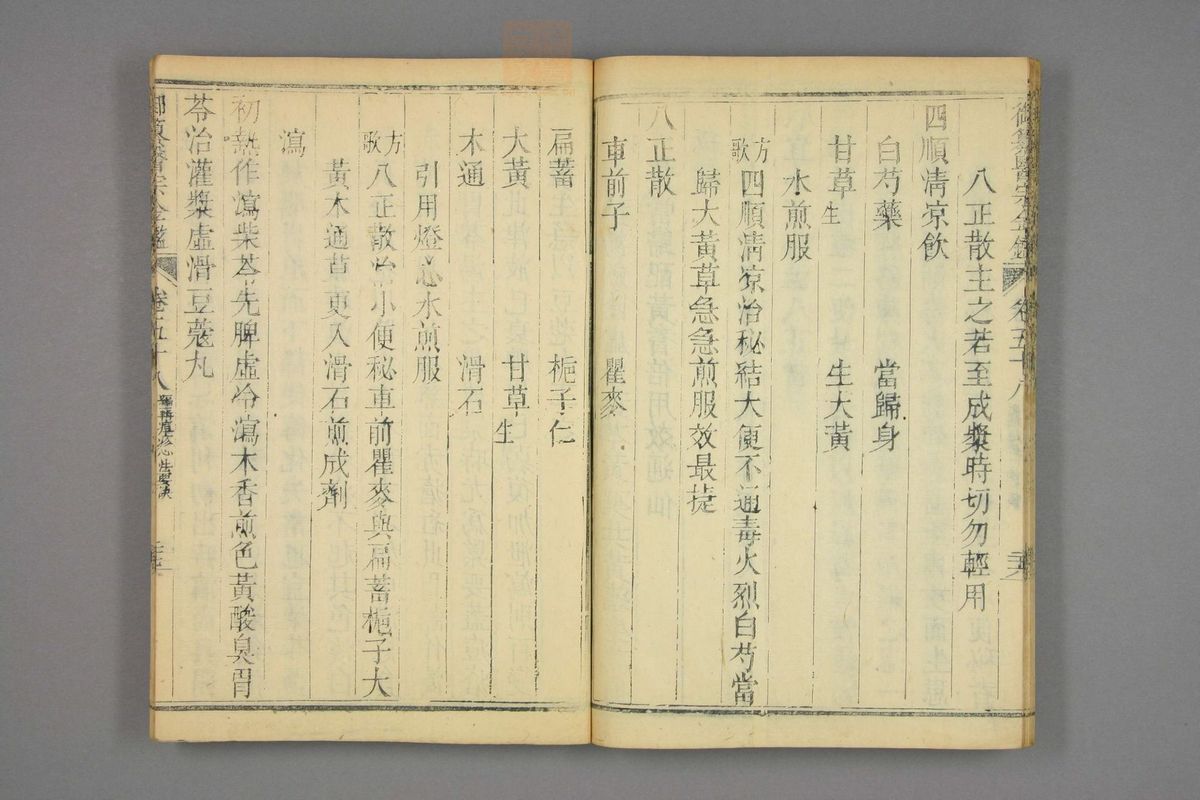 八正散主之若至成漿時切勿輕用
四順清凉飲
白芍藥 當歸身
甘草生 生大黃
立水煎服
方歌 四順清凉治秘結大便不通毒火烈白芍當
歸大黃草急急煎服效最捷
八正散
車前子 瞿麥
扁蓄 梔子仁
大黃 甘草生
木通 滑石
引用燈心水煎服
方歌 八正散治小便秘車前瞿麥與扁蓄梔子大
黃木通草更入滑石煎成劑
瀉
初熱作瀉柴苓先脾虛冷瀉木香煎色黃酸臭胃
苓治灌漿虛滑豆蔻丸
卷五十八